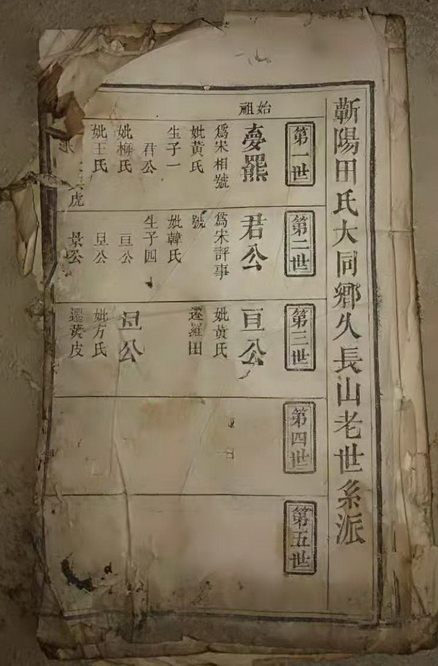 蘄陽田氏大同鄉久長山老世系派
第一世
始祖
夢羆
爲宋相號
妣黃氏
生子一
君公
妣柳氏
妣王氏
虎
第二世
君公
爲宋評事
號
妣韓氏
生子四
亘公
旦公
景公
第三世
亘公
妣黃氏
遷羅田
旦公
妣方氏
遷黃皮
第四世
第五世